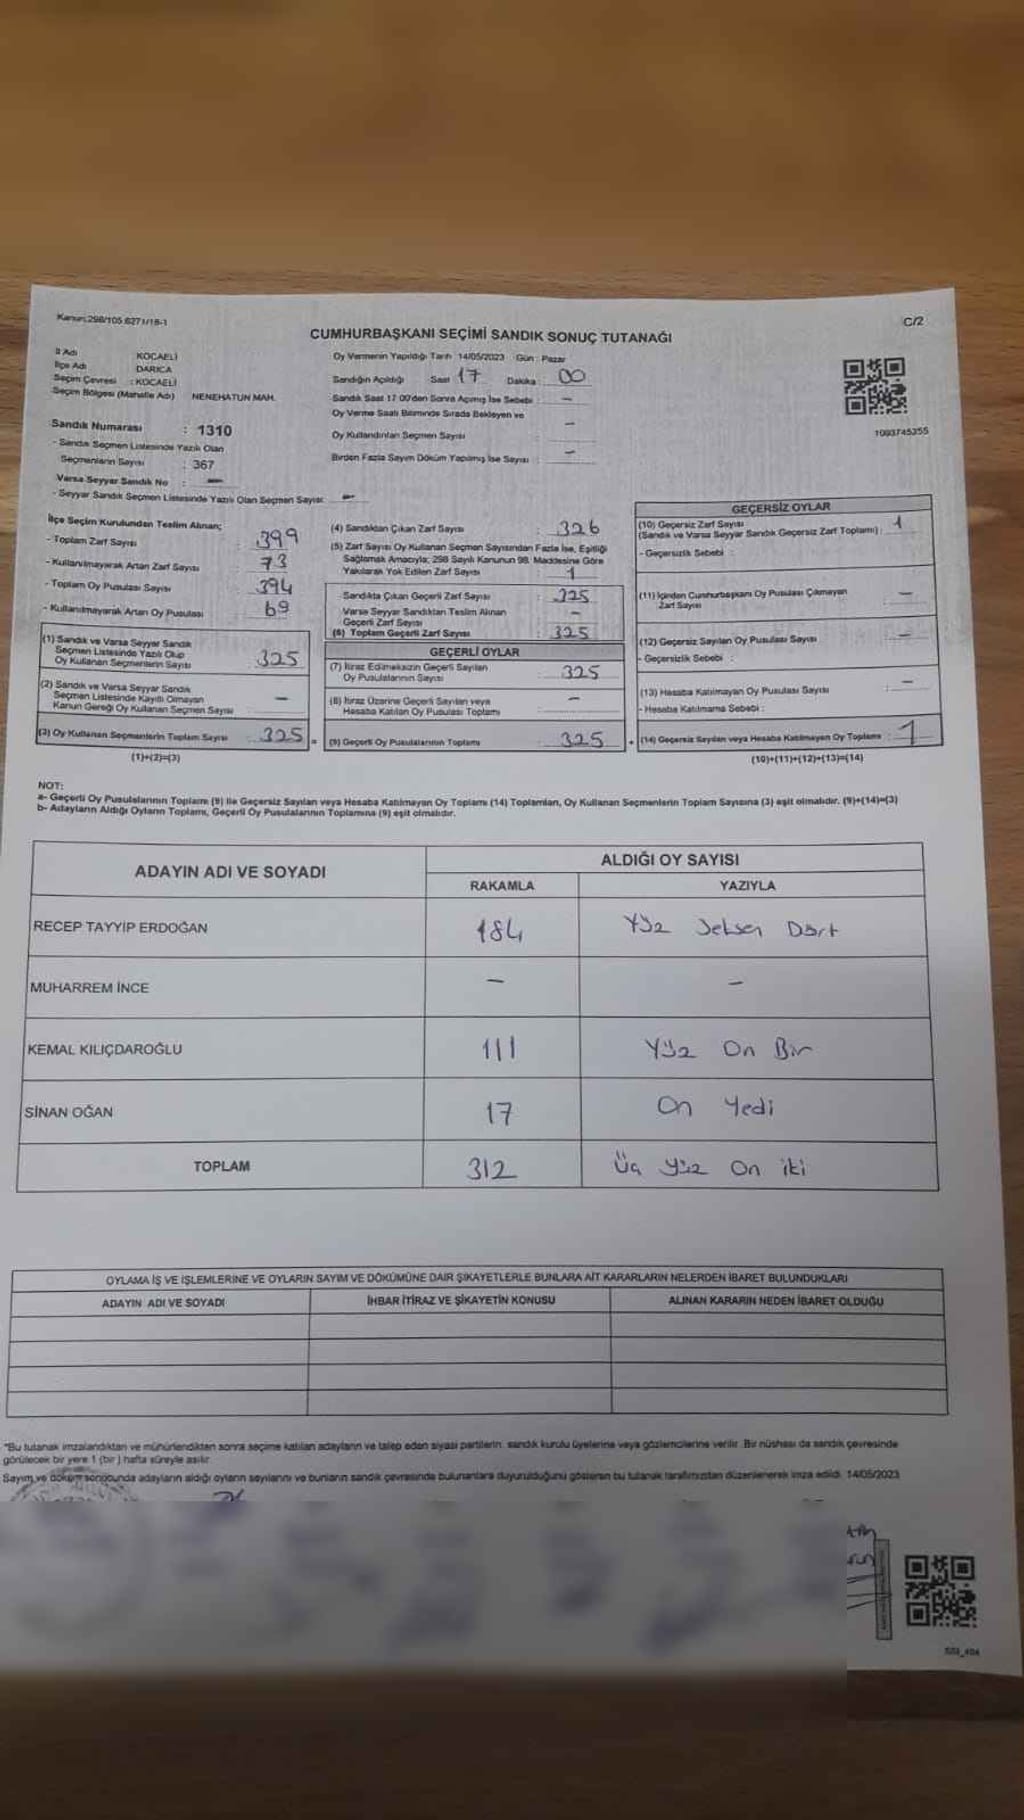 Kanun:298/105 6271/18-1
C/2
CUMHURBAŞKANI SEÇİMİ SANDIK SONUÇ TUTANAĞI
İl Adı KOCAELİ
İlçe Adı DARICA
Seçim Çevresi : KOCAELİ
Seçim Bölgesi (Mahalle Adı) NENEHATUN MAH.
Sandık Numarası : 1310
- Sandık Seçmen Listesinde Yazılı Olan
Seçmenlerin Sayısı : 367
Varsa Seyyar Sandık No : -
- Seyyar Sandık Seçmen Listesinde Yazılı Olan Seçmen Sayısı: -
Oy Vermenin Yapıldığı Tarih 14/05/2023 Gün : Pazar
Sandığın Açıldığı Saat 17 Dakika : 00
Sandık Saat 17 00'den Sonra Açılmış İse Sebebi : -
Oy Verme Saati Bitiminde Sırada Bekleyen ve
Oy Kullandırılan Seçmen Sayısı -
Birden Fazla Sayım Döküm Yapılmış İse Sayısı : -
1003745355
İlçe Seçim Kurulundan Teslim Alınan;
- Toplam Zarf Sayısı : 399
- Kullanılmayarak Artan Zarf Sayısı : 73
- Toplam Oy Pusulası Sayısı : 394
- Kullanılmayarak Artan Oy Pusulası : 69
(1) Sandık ve Varsa Seyyar Sandık
Seçmen Listesinde Yazılı Olup
Oy Kullanan Seçmenlerin Sayısı : 325
(2) Sandık ve Varsa Seyyar Sandık
Seçmen Listesinde Kayıtlı Olmayan
Kanun Gereği Oy Kullanan Seçmen Sayısı -
(3) Oy Kullanan Seçmenlerin Toplam Sayısı : 325 =
(1)+(2)=(3)
(4) Sandıktan Çıkan Zarf Sayısı : 326
(5) Zarf Sayısı Oy Kullanan Seçmen Sayısından Fazla İse, Eşitliği
Sağlamak Amacıyla; 298 Sayılı Kanunun 98. Maddesine Göre
Yakılarak Yok Edilen Zarf Sayısı : 1
Sandıkta Çıkan Geçerli Zarf Sayısı : 325
Varsa Seyyar Sandıktan Teslim Alınan
Geçerli Zarf Sayısı -
(6) Toplam Geçerli Zarf Sayısı : 325
GEÇERLİ OYLAR
(7) İtiraz Edilmeksizin Geçerli Sayılan
Oy Pusulalarının Sayısı : 325
(8) İtiraz Üzerine Geçerli Sayılan veya
Hesaba Katılan Oy Pusulası Toplamı : -
(9) Geçerli Oy Pusulalarının Toplamı : 325 +
GEÇERSİZ OYLAR
(10) Geçersiz Zarf Sayısı
(Sandık ve Varsa Seyyar Sandık Geçersiz Zarf Toplamı) : 1
- Geçersizlik Sebebi :
(11) İçinden Cumhurbaşkanı Oy Pusulası Çıkmayan
Zarf Sayısı : -
(12) Geçersiz Sayılan Oy Pusulası Sayısı : -
- Geçersizlik Sebebi :
(13) Hesaba Katılmayan Oy Pusulası Sayısı : -
- Hesaba Katılmama Sebebi :
(14) Geçersiz Sayılan veya Hesaba Katılmayan Oy Toplamı : 1
(10)+(11)+(12)+(13)=(14)
NOT:
a- Geçerli Oy Pusulalarının Toplamı (9) ile Geçersiz Sayılan veya Hesaba Katılmayan Oy Toplamı (14) Toplamları, Oy Kullanan Seçmenlerin Toplam Sayısına (3) eşit olmalıdır. (9)+(14)=(3)
b- Adayların Aldığı Oyların Toplamı, Geçerli Oy Pusulalarının Toplamına (9) eşit olmalıdır.
ADAYIN ADI VE SOYADI
ALDIĞI OY SAYISI
RAKAMLA YAZIYLA
RECEP TAYYİP ERDOĞAN 184 Yüz Seksen Dört
MUHARREM İNCE - -
KEMAL KILIÇDAROĞLU 111 Yüz On Bir
SİNAN OĞAN 17 On Yedi
TOPLAM 312 Üç yüz On iki
OYLAMA İŞ VE İŞLEMLERİNE VE OYLARIN SAYIM VE DÖKÜMÜNE DAİR ŞİKAYETLERLE BUNLARA AİT KARARLARIN NELERDEN İBARET BULUNDUKLARI
ADAYIN ADI VE SOYADI İHBAR İTİRAZ VE ŞİKAYETİN KONUSU ALINAN KARARIN NEDEN İBARET OLDUĞU
*Bu tutanak imzalandıktan ve mühürlendikten sonra seçime katılan adayların ve talep eden siyasi partilerin, sandık kurulu üyelerine veya gözlemcilerine verilir. Bir nüshası da sandık çevresinde
görülecek bir yere 1 (bir) hafta süreyle asılır.
Sayım ve döküm sonucunda adayların aldığı oyların sayılarını ve bunların sandık çevresinde bulunanlara duyurulduğunu gösteren bu tutanak tarafımızdan düzenlenerek imza edildi. 14/05/2023